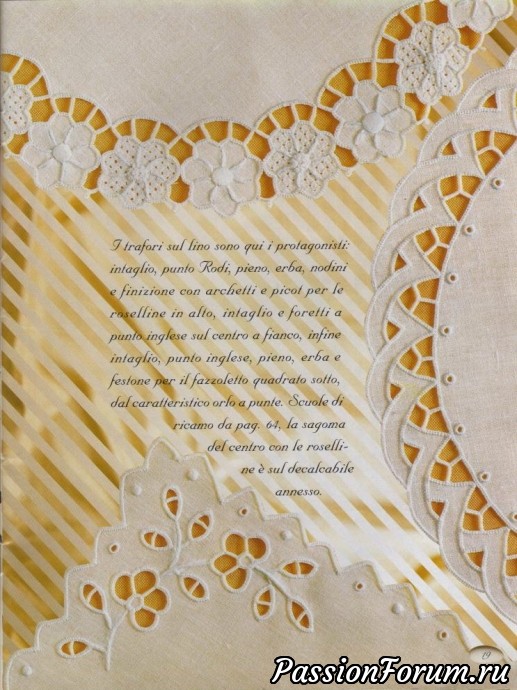 I trafori sul lino sono qui i protagonisti:
intaglio, punto Rodi, pieno, erba, nodini
e finizione con archetti e picot per le
roselline in alto, intaglio e foretti a
punto inglese sul centro a fianco, infine
intaglio, punto inglese, pieno, erba e
festone per il fazzoletto quadrato sotto,
dal caratteristico orlo a punte. Scuole di
ricamo da pag. 64, la sagoma
del centro con le roselli-
ne è sul decalcabile
annesso.
19
PassionForum.ru